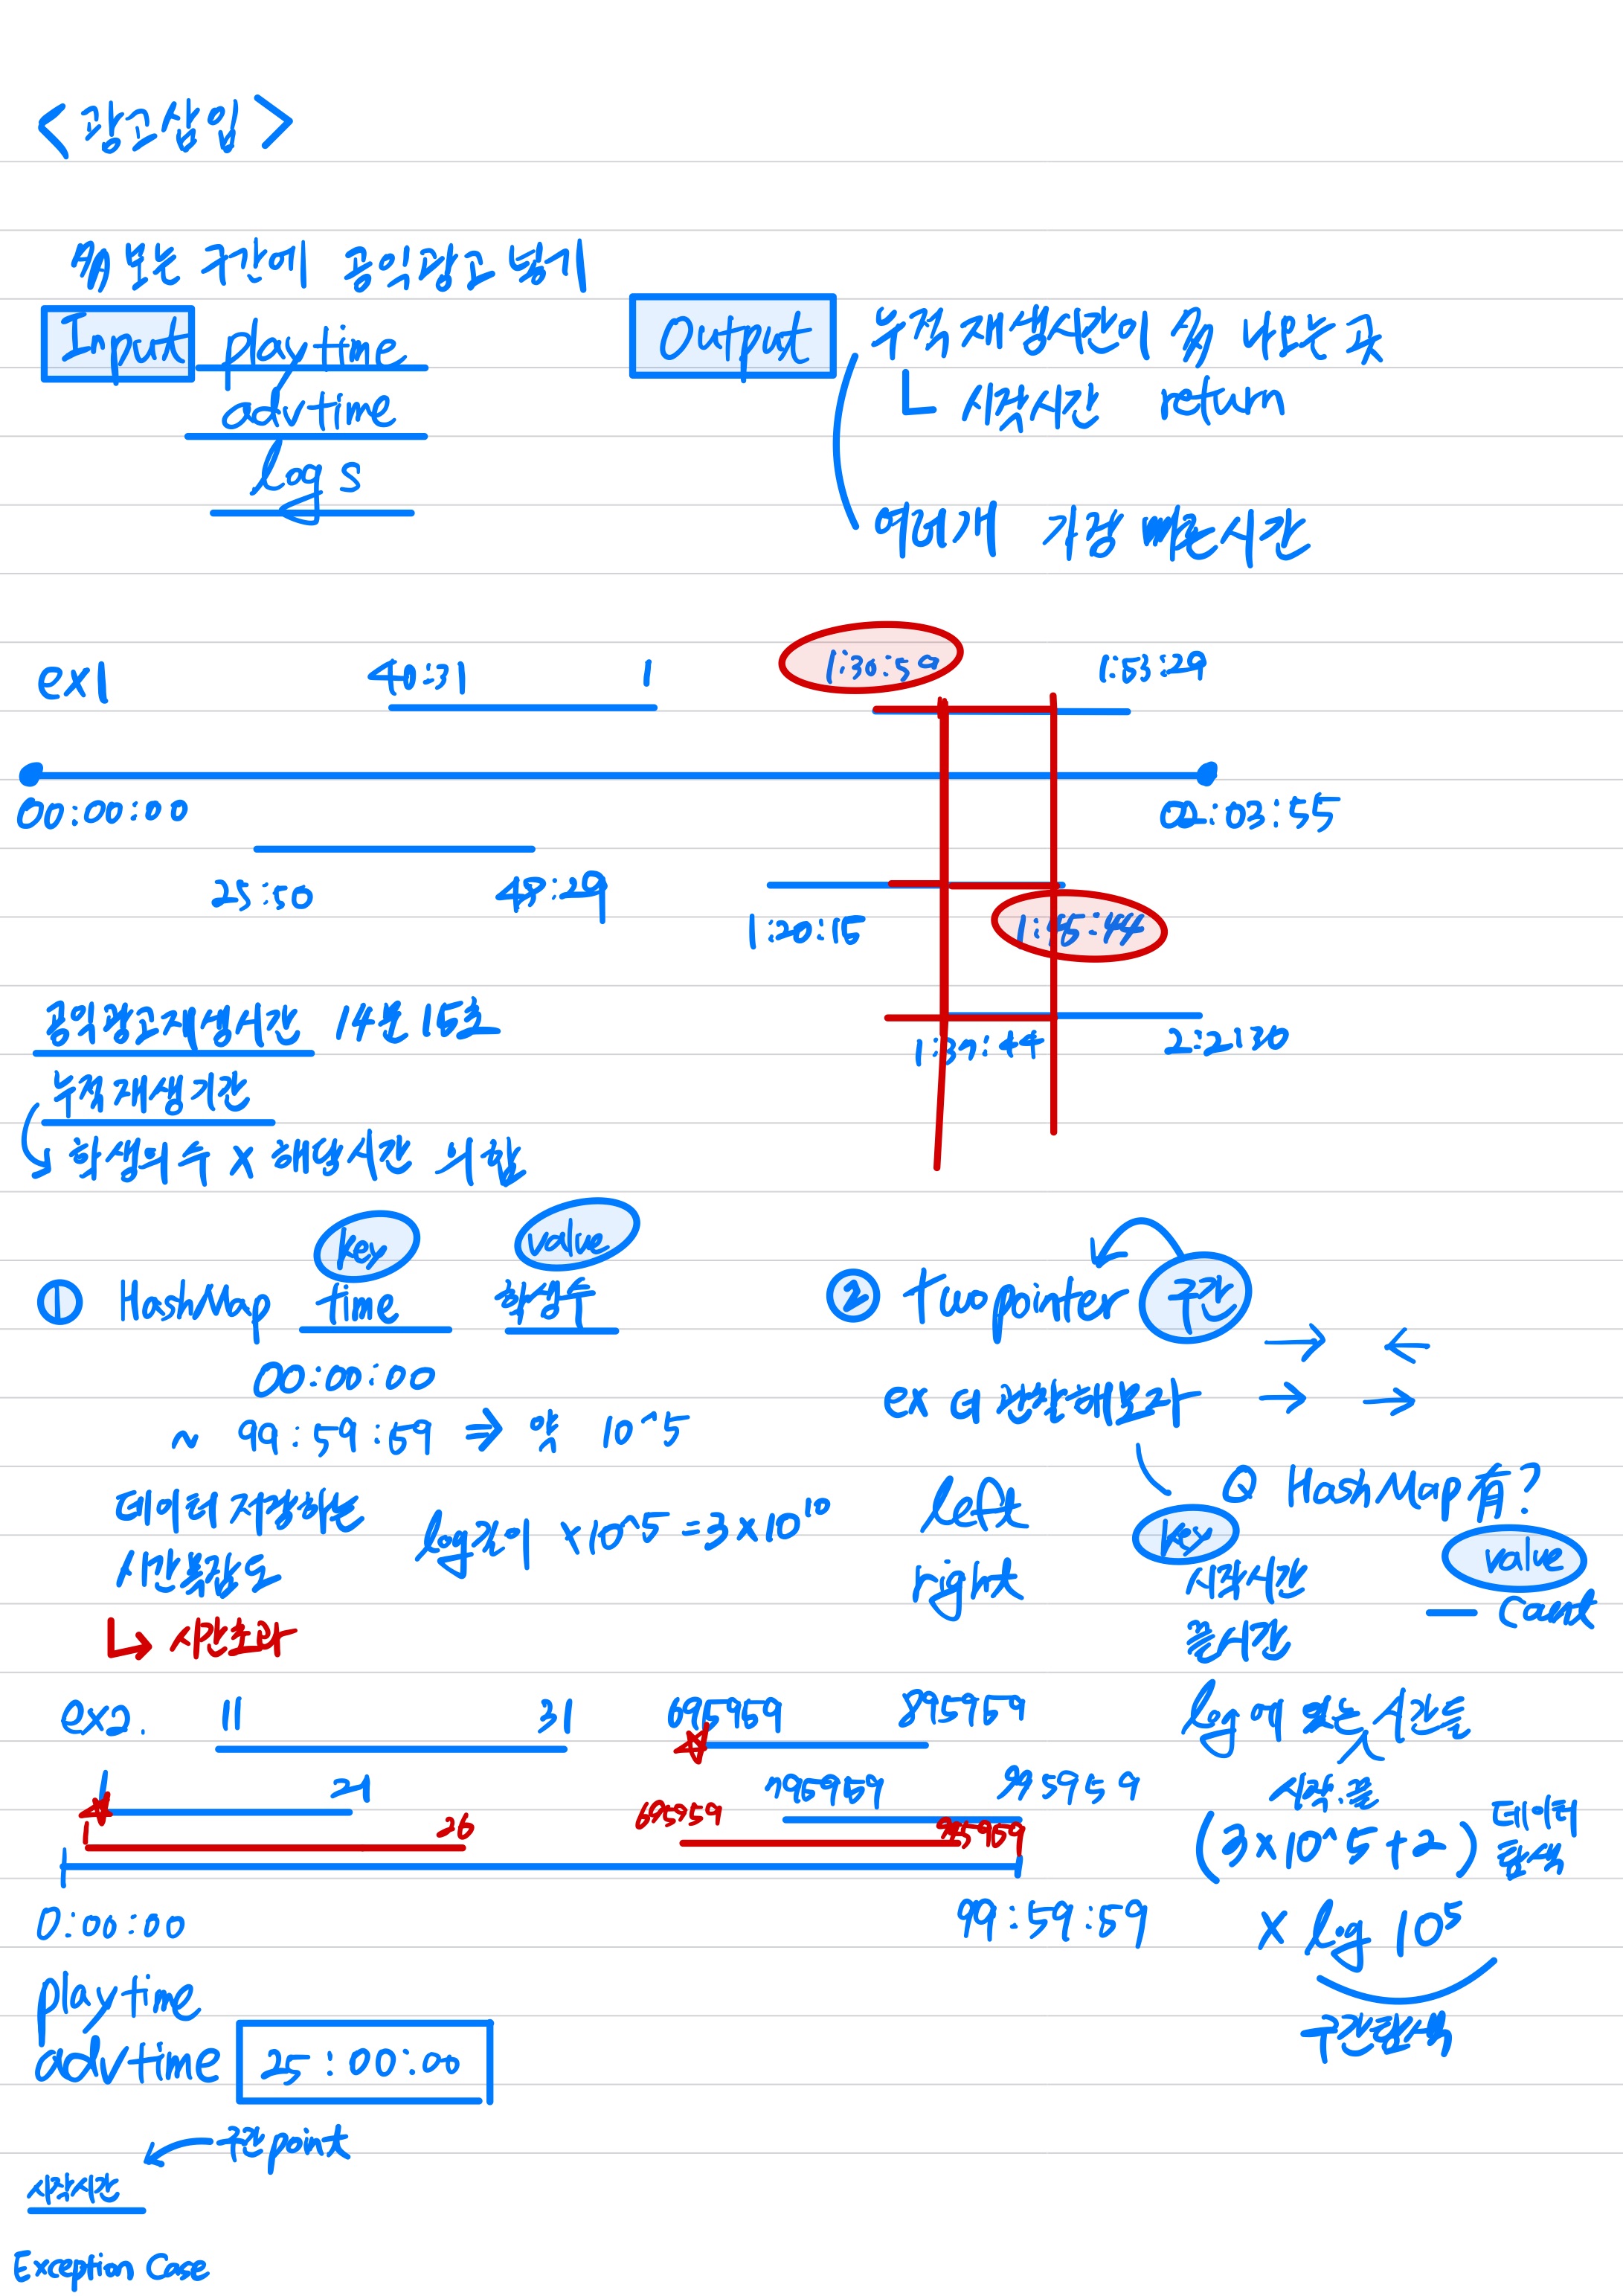 <광고삽입>
多 보는 구간에 공익광고 넣기
Input play time
adv time
logs
Output 누적재생시간이 多 나오는 곳
시작시간 return
여러개 가장 빠른시간
ex1 40:31 1 1:30:59 1:53:29
00:00:00 02:03:55
25:50 48:29 1:20:15 1:45:44
공익광고재생시간 14분 15초
1:37:44 2:2:30
누적재생시간
학생의 수 x 해당시간 의 합
key value
① HashMap time 학생수
00:00:00
~ 99:59:59 ⇒ 약 10^5
데이터 저장하는
시간복잡도
log길이 x10^5 = 3x10¹⁰
↳ 시간초과
② two pointer 구간
→ ←
ex 더 관찰해보자 → →
Q HashMap 有?
left
right
key value
시작시간
끝시간
— Count
ex2. 11 31 695959 895959
1 21 795959 995959
1 26 695959 945959
0:00:00 99:59:59
log에 있는 시간들
시작.끝
(3x10^5+2) 데이터
탐색
x log 10⁵
구간탐색
play time
adv time 25:00:00
구간 point
시작시간
Exception Case